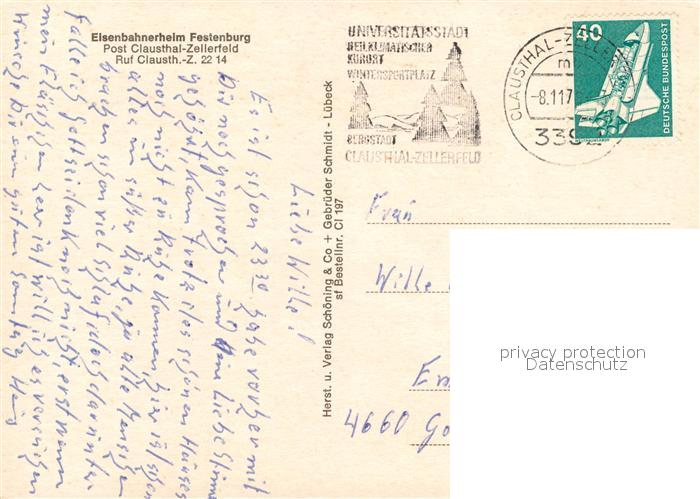 Eisenbahnerheim Festenburg
Post Clausthal-Zellerfeld
Ruf Clausth.-Z. 22 14
UNIVERSITÄTSSTADT
HEILKLIMATISCHER
KURORT
WINTERSPORTPLATZ
BERGSTADT
CLAUSTHAL-ZELLERFELD
CLAUSTHAL-ZELLERF
m
-8.11.7
3392
40
DEUTSCHE BUNDESPOST
Herst. u. Verlag Schöning & Co + Gebrüder Schmidt - Lübeck
sf Bestellnr. Cl 197
Liebe Wille!
Es ist schon 23 30 habe vorher mit
Dir noch gesprochen und Deine Liebe Stimme
gehört kann trotz des schönen Hauses
noch nicht zur Ruhe kommen, hier ist schon
alles in süßer Ruhe, ja alte Menschen
brauchen schon viel Schlaf, doch darunter
falle ich Gott sei dank noch nicht, erst wenn
mein Fläschchen leer ist will ich es versuchen
Wünsche Dir ein guten Sonntag
Frau
Wille
4660 G
privacy protection
Datenschutz